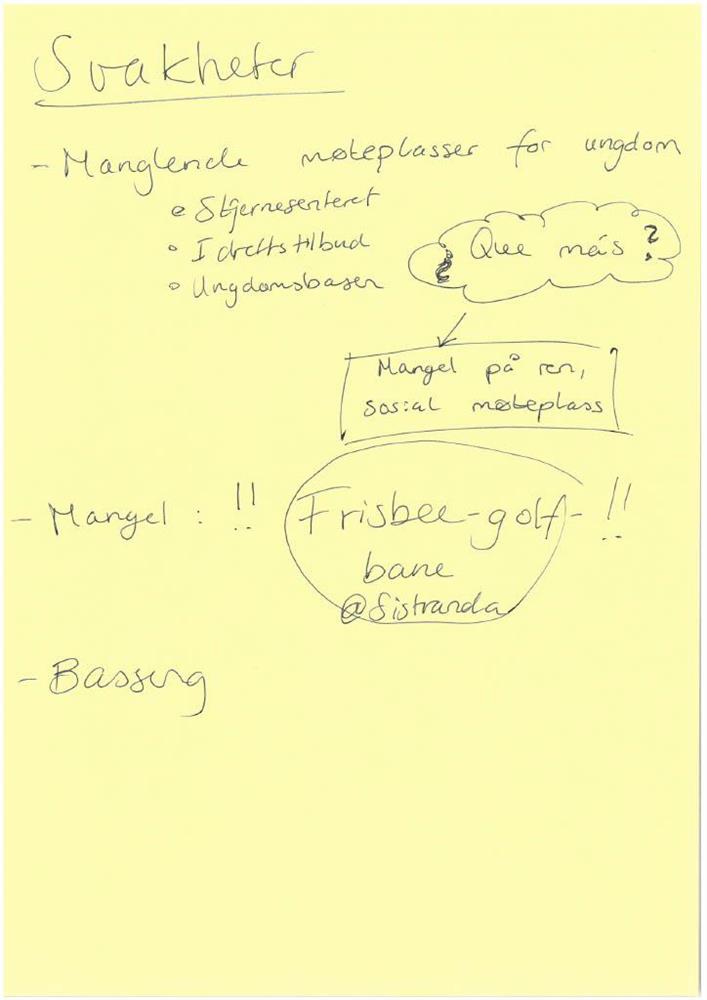 Svakheter
- Manglende møteplasser for ungdom
• Stjernesenteret
• Idrettstilbud
• Ungdomsbasen
¿ Que más ?
Mangel på ren,
sosial møteplass
- Mangel : !! Frisbee-golf- !!
bane
@sistranda
- Basseng